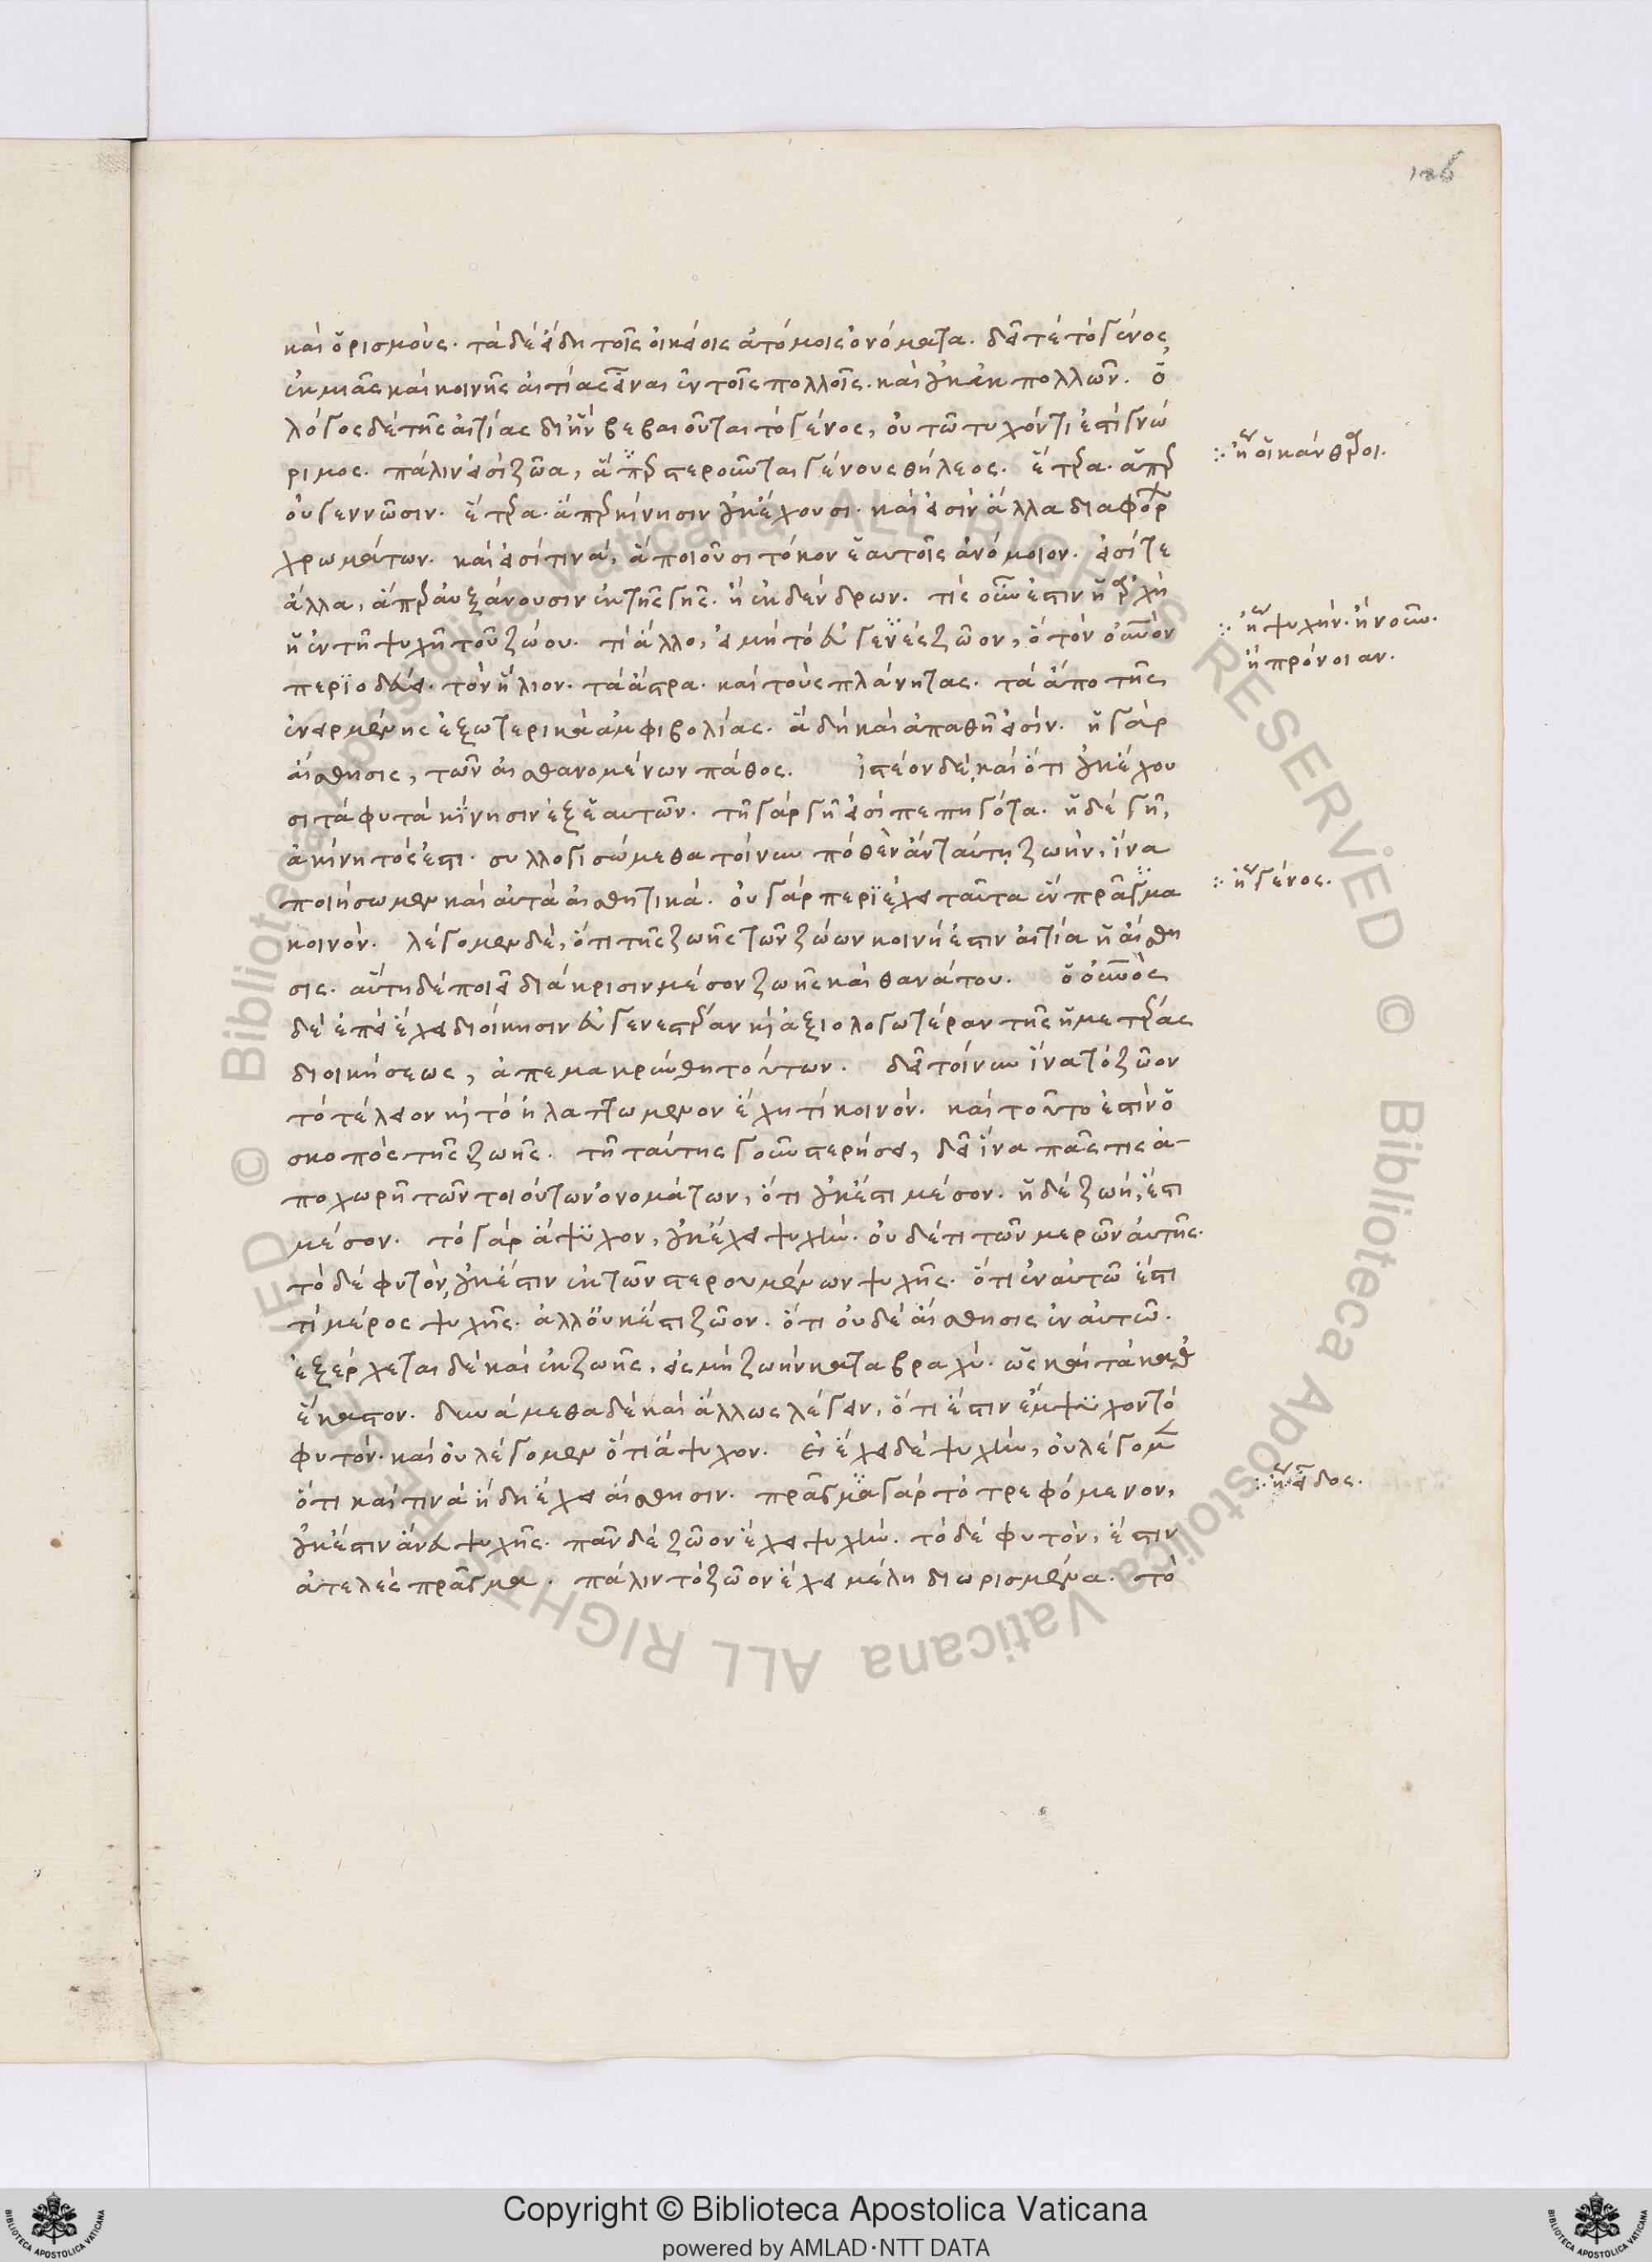 126
καὶ ὁρισμούς. τὰ δὲ εἴδη τοῖς οἰκείοις ἀτόμοις ὀνόματα. δεῖ τὲ τὸ γένος
ἐκ μιᾶς καὶ κοινῆς αἰτίας εἶναι ἐν τοῖς πολλοῖς. καὶ οὐκ ἐκ πολλῶν. ὁ
λόγος δὲ τῆς αἰτίας δι' ἣν βεβαιοῦται τὸ γένος, οὐ τῶ τυχόντι ἐστὶ γνώ
ριμος. πάλιν εἰσὶ ζῶα, ἅπερ στεροῦνται γένους θήλεος. ἕτερα ἅπερ
οὐ γεννῶσιν. ἕτερα ἅπερ κίνησιν οὐκ ἔχουσι. καὶ εἰσὶν ἄλλα διαφόρων
χρωμάτων. καὶ εἰσί τινα, ἃ ποιοῦσι τόκον ἑαυτοῖς ἀνόμοιον. εἰσί τε
ἄλλα, ἅπερ αὐξάνουσιν ἐκ τῆς γῆς. ἢ ἐκ δένδρων. τίς οὖν ἐστὶν ἡ ἀρχὴ
ἡ ἐν τῆ ψυχῆ τοῦ ζώου. τί ἄλλο, εἰ μὴ τὸ εὐγενὲς ζῶον, ὃ τὸν οὐνὸν
περϊοδεύει. τὸν ἥλιον. τὰ ἄστρα. καὶ τοὺς πλάνητας. τὰ ἀπο τῆς
ἐνειρμένης ἐξωτερικὰ ἀμφιβολίας. ἃ δὴ καὶ ἀπαθῆ εἰσίν. ἡ γὰρ
αἴσθησις, τῶν αἰσθανομένων πάθος. ἰστέον δὲ, καὶ ὅτι οὐκ ἔχου
σι τὰ φυτὰ κίνησιν ἐξ ἑαυτῶν. τῆ γὰρ γῆ εἰσὶ πεπηγότα. ἡ δὲ γῆ,
ἀκίνητός ἐστι. συλλογισώμεθα τοίνυν πόθεν ἂν ταύτη ζωὴν, ἵνα
ποιήσωμεν καὶ αὐτὰ αἰσθητικά. οὐ γὰρ περϊέχει ταῦτα ἓν πρᾶγμα
κοινόν. λέγομεν δὲ, ὅτι τῆς ζωῆς τῶν ζώων κοινή ἐστιν αἰτία ἡ αἴσθη
σις. αὕτη δὲ ποιεῖ διάκρισιν μέσον ζωῆς καὶ θανάτου. ὁ οὐνὸς
δὲ ἐπεὶ ἔχει διοίκησιν εὐγενεστέραν καὶ ἀξιολογωτέραν τῆς ἡμετέρας
διοικήσεως, ἀπεμακρύνθη τούτων. δεῖ τοίνυν ἵνα τὸ ζῶον
τὸ τέλειον καὶ τὸ ἠλαττωμένον ἔχη τὶ κοινόν. καὶ τοῦτο ἐστὶν ὁ
σκοπὸς τῆς ζωῆς. τῆ ταύτης γοῦν στερήσει, δεῖ ἵνα πᾶς τις ἀ-
ποχωρῆ τῶν τοιούτων ὀνομάτων, ὅτι οὐκ ἔστι μέσον. ἡ δὲ ζωὴ, ἔστι
μέσον. τὸ γὰρ ἄψϋχον, οὐκ ἔχει ψυχὴν. οὐδέ τι τῶν μερῶν αὐτῆς.
τὸ δὲ φυτὸν, οὐκ ἔστιν ἐκ τῶν στερουμένων ψυχῆς. ὅτι ἐν αὐτῶ ἔστι
τὶ μέρος ψυχῆς. ἀλλ' οὐκ ἔστι ζῶον. ὅτι οὐδὲ αἴσθησις ἐν αὐτῶ.
ἐξέρχεται δὲ καὶ ἐκ ζωῆς, εἰς μὴ ζωὴν κατα βραχύ. ὡς καὶ τὰ καθ'
ἕκαστον. δυνάμεθα δὲ καὶ ἄλλως λέγειν, ὅτι ἔστιν ἔμψϋχον τὸ
φυτόν. καὶ οὐ λέγομεν ὅτι ἄψυχον. εἰ ἔχει δὲ ψυχὴν, οὐ λέγομεν
ὅτι καί τινα ἤδη ἔχει αἴσθησιν. πρᾶγμα γὰρ τὸ τρεφόμενον,
οὐκ ἔστιν ἄνευ ψυχῆς. πᾶν δὲ ζῶον ἔχει ψυχὴν. τὸ δὲ φυτὸν, ἔστιν
ἀτελὲς πρᾶγμα. πάλιν τὸ ζῶον ἔχει μέλη διωρισμένα. τὸ
ἢ οἱ κάνθαροι.
ἢ ψυχὴν. ἢ νοῦν.
ἢ πρόνοιαν.
ἢ γένος.
ἢ εἶδος.
© Biblioteca Apostolica Vaticana ALL RIGHTS RESERVED
Copyright © Biblioteca Apostolica Vaticana
powered by AMLAD·NTT DATA
BIBLIOTECA APOSTOLICA VATICANA
BIBLIOTECA APOSTOLICA VATICANA